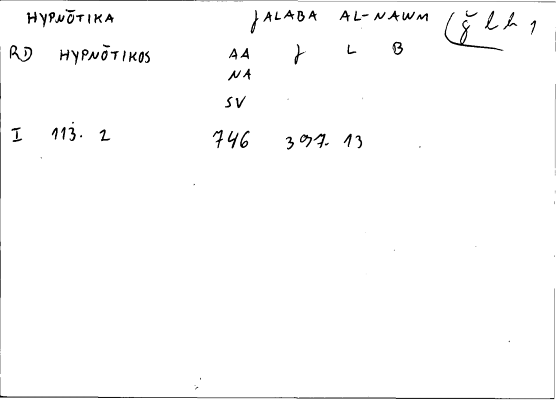 HYPNŌTIKA JALABA AL-NAWM (ǧ l b 1
RD HYPNŌTIKOS AA J L B
NA
SV
I 113. 2 746 397. 13